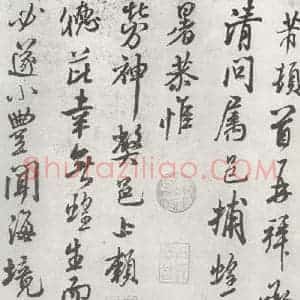 芾頓首再拜
清問属邑捕蝗
暑恭惟
勞神弊邑上賴
德芘幸無蝗生而
必遂小豐聞海境
Shufaziliao.COM